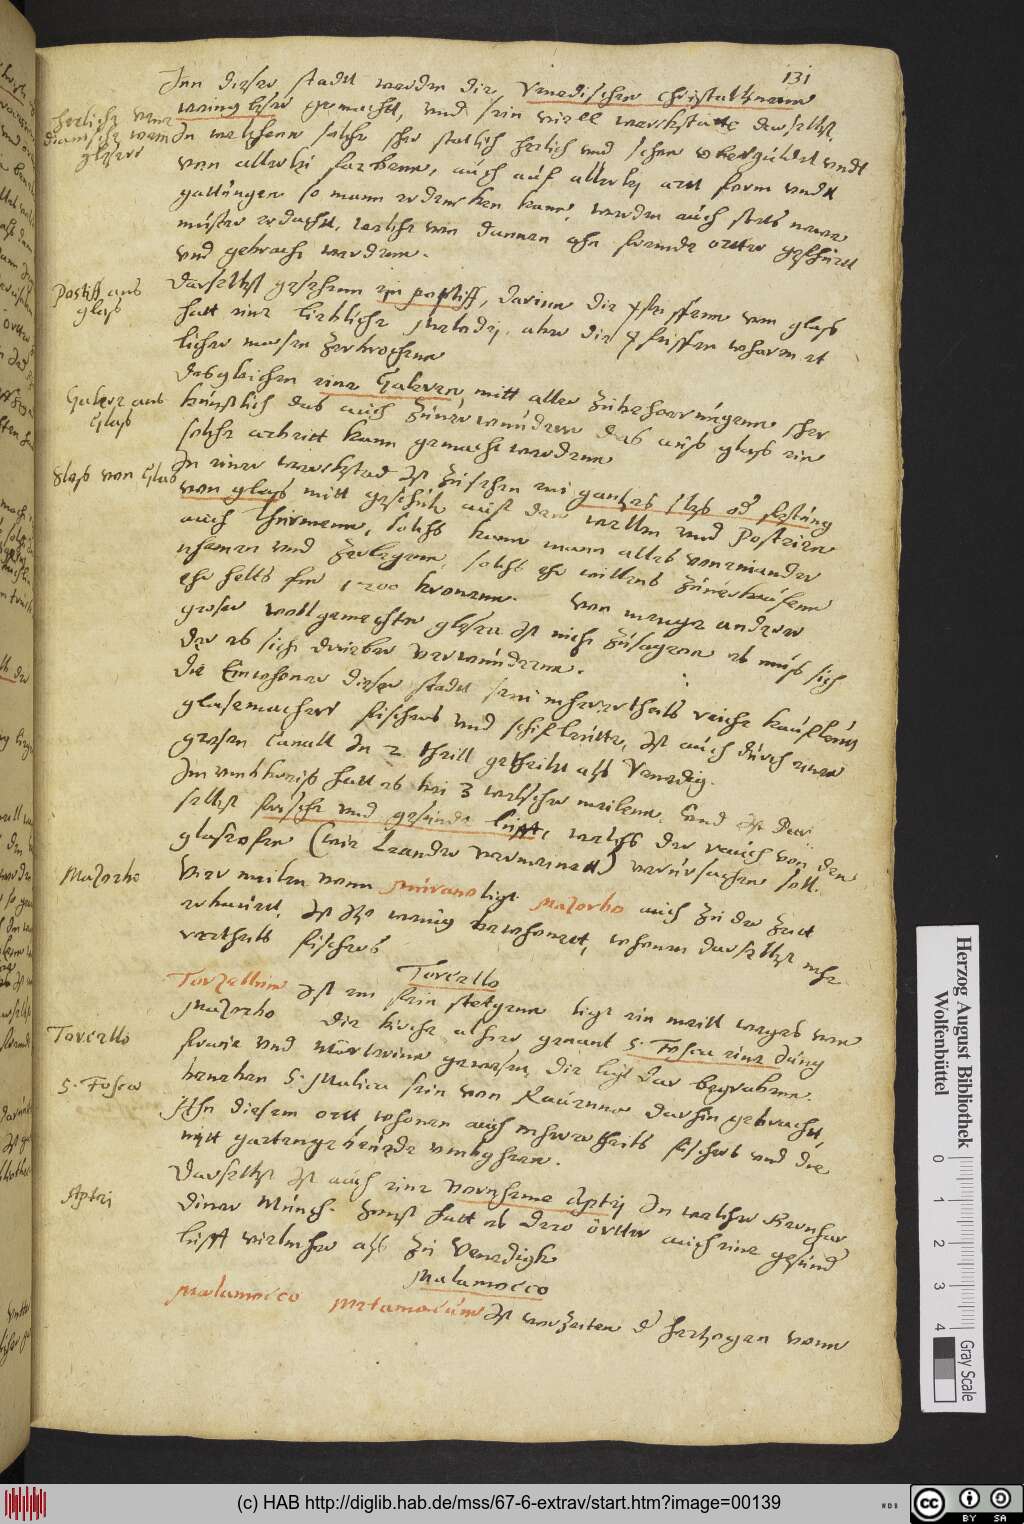 131
Inn dieser stadtt werden die Venedischen Christallinnenn
weinngleser gemacht, und sein viell werckstatte daselbst
Herliche vene
dianische wein
gleser
In welchenn solche sher statlich herlich und schon vbergüldet undt
von allerlei farbenn, auch auf allerlej artt form undtt
gattungen so mann erdencken kann, werden auch stets newe
muster erdacht, welche von dannen ihn frembde orter gefhürtt
und gebracht werdenn.
Postiff aus
glaß
Daselbst gesehenn ein positiff, darinn die pfeiffenn von glaß
hatt eine liebliche Melodej, aber die pfeiffen wharen et
licher masen zerbrochenn
Galere aus
Glaß
Desgleichen eine Galeren, mitt aller zubehoerungenn sher
künstlich das auch zuverwundern das auß glaß ein
solche arbeitt kann gemacht werdenn
Schloß von Glaß
In einer werckstad ist zusehen ein gantzes schloß od festung
von glaß mitt geschütz auf den wallen und Posteien
auch thürmenn, solchs kann mann alles voneinander
nhemen und zerlegenn, solchs ehr willens zuverkaufenn
ehr helts fur 1200 kronenn. Von menge anderer
groser wollgemachter gleser ist nicht zusagenn es muß sich
der es sicht drueber verwundernn.
Die Einwhoner dieser stadtt sein mherertheils reiche kaufleutt
glasemacherr fischers und schifleutte, ist auch durch einen
grosen Canall in 2 theill getheilet alß Venedig.
Im umbkreiß hatt es bei 3 welscher meilenn. Und ist da
selbst frische und gesunde lufft, welchs der rauch von den
glaßofen (wie Leander vermeinett) verursachen soll.
Mazorbo
Vier meilen vonn Murano ligt Mazorbo auch zu der zeit
erbauett, ist itzo wenig bewhonett, whonen daselbst mhe
rertheils fischers
Torcello
Torcello
Torzellum ist ein fein stetgenn ligt ein meill weges von
Mazorbo die kirche alhier genant S. Fosca eine Jung
S. Fosca
frawe und Mörterinn gewesen, die ligt dar begrabenn.
beneben S. Malica sein von Ravenna darhin gebracht,
Ahn diesem ortt whonen auch mherertheils fischers und die
mitt gartengebeude umbgehen.
Aptei
Daselbst ist auch eine vornheme Aptej in welcher Bernhar
diner Münch. Sonst hatt es dero örtter auch eine gesund
lufft vielmher alß zu Venedigk
Malamocco
Malamocco Metamaucum ist vorzeiten d hertzogen vonn
Herzog August Bibliothek
Wolfenbüttel
0 1 2 3 4
Gray Scale
(c) HAB http://diglib.hab.de/mss/67-6-extrav/start.htm?image=00139
WDB
cc BY SA